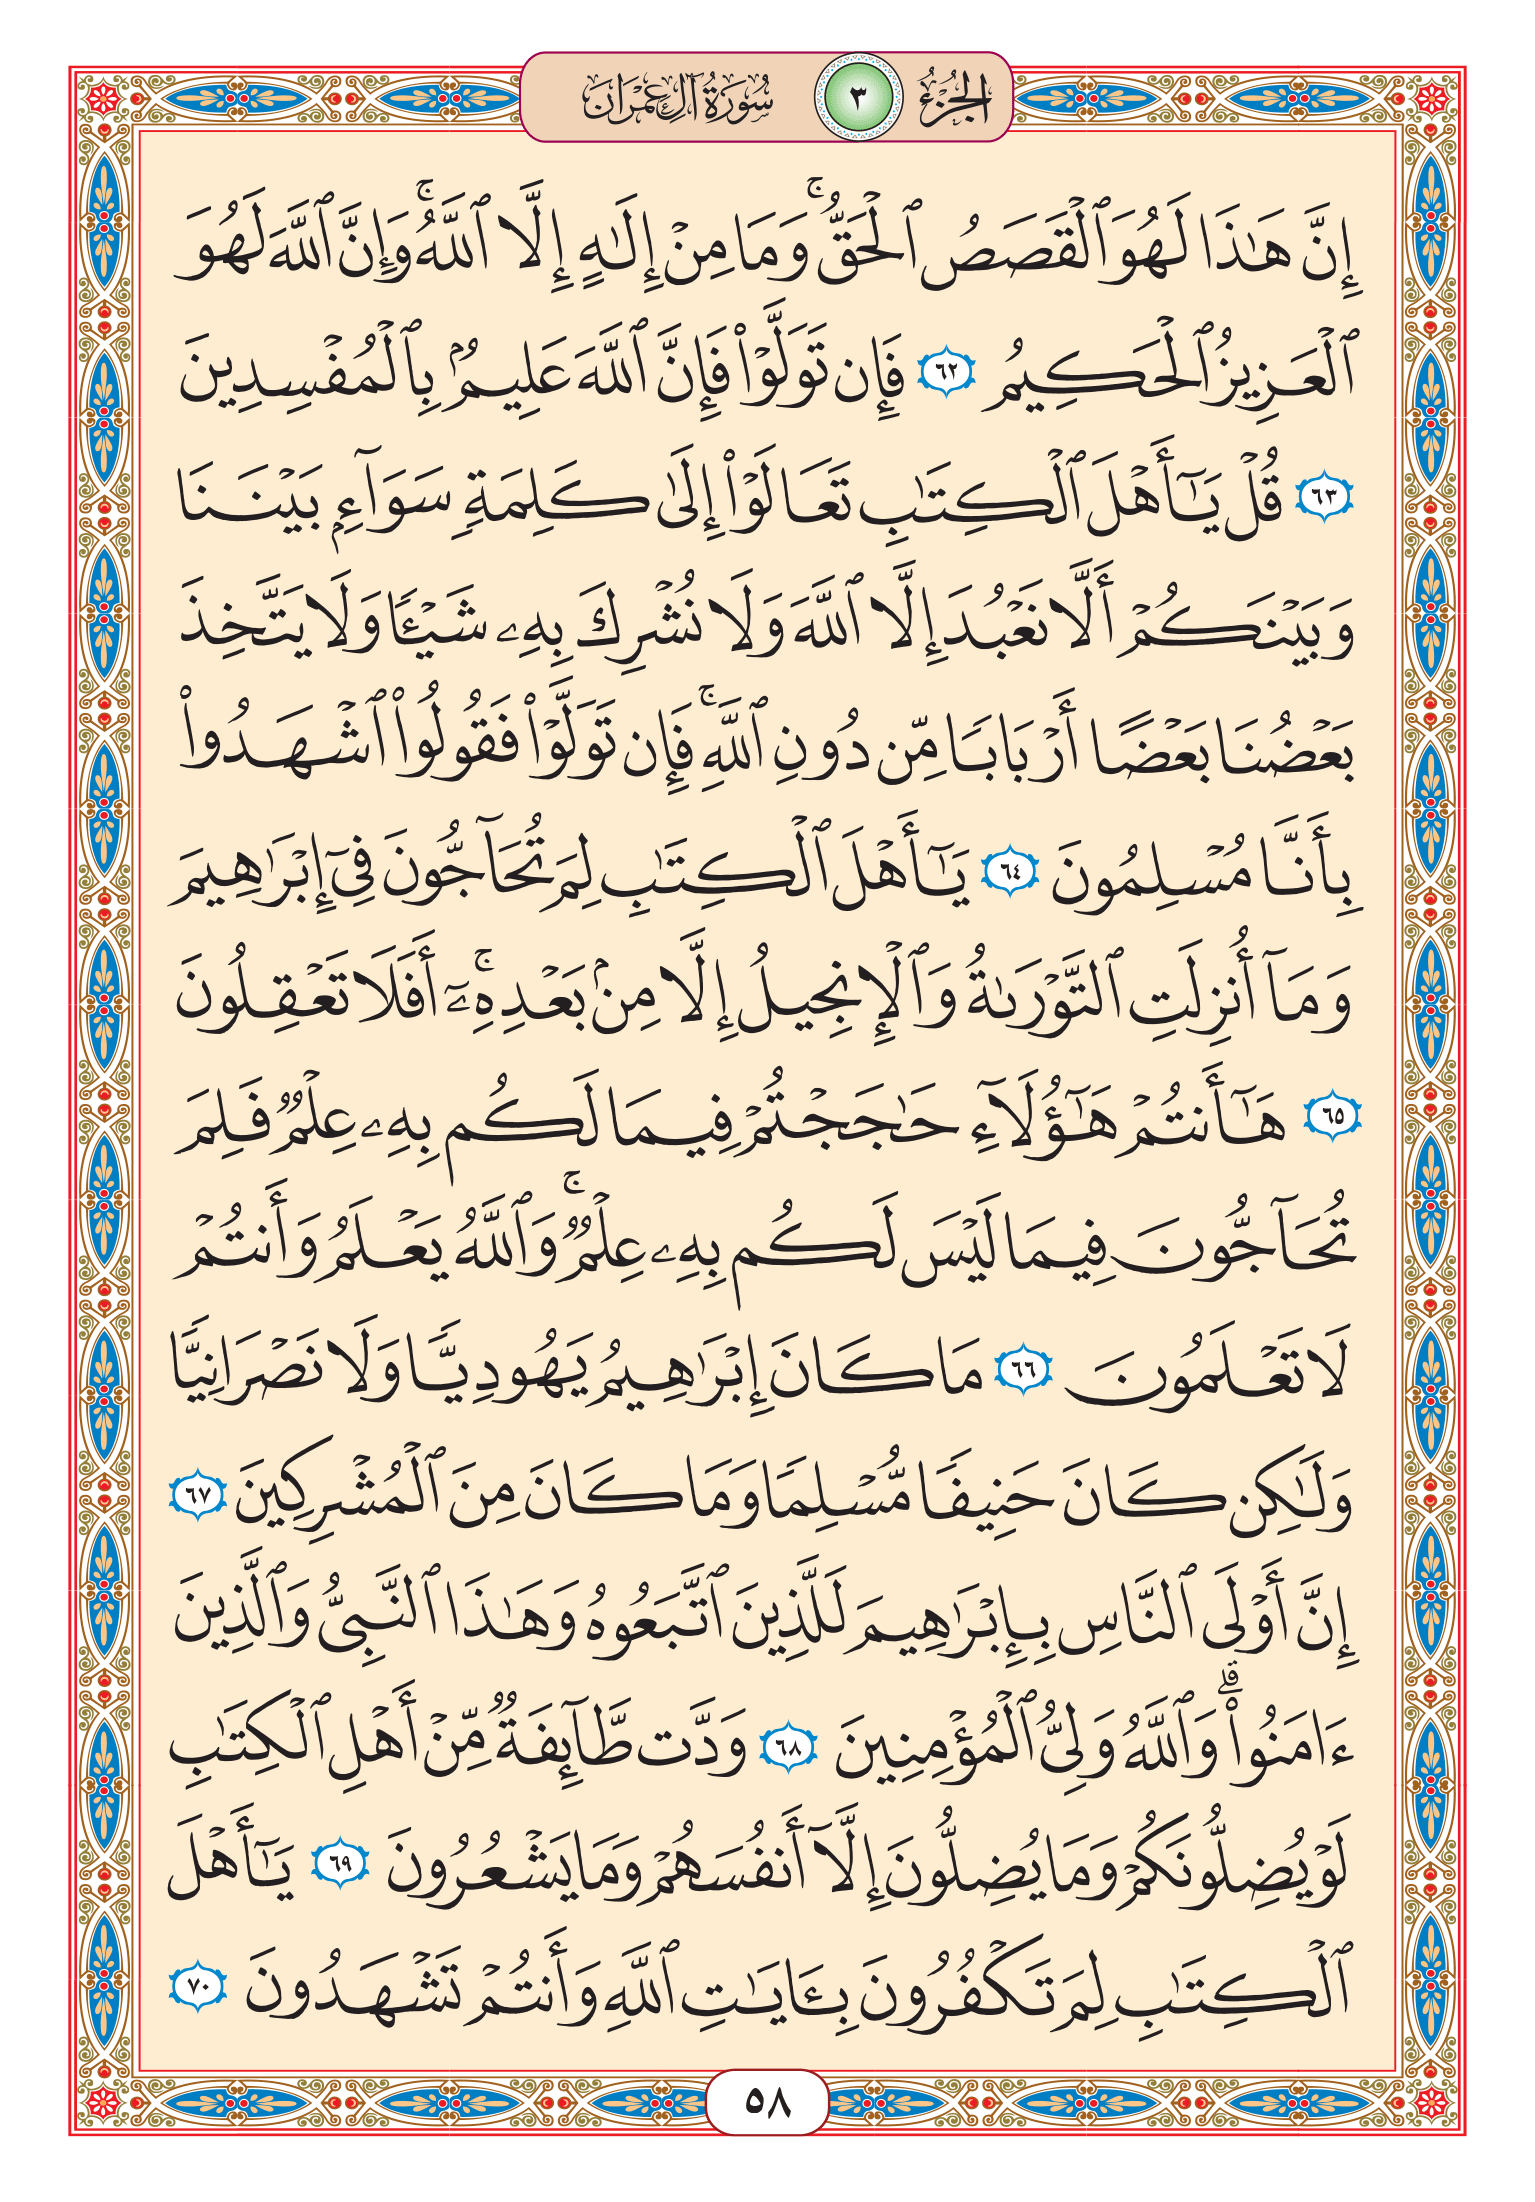 الجزء ٣ سورة آل عمران
إِنَّ هَٰذَا لَهُوَ ٱلْقَصَصُ ٱلْحَقُّ ۚ وَمَا مِنْ إِلَٰهٍ إِلَّا ٱللَّهُ ۚ وَإِنَّ ٱللَّهَ لَهُوَ
ٱلْعَزِيزُ ٱلْحَكِيمُ ٦٢ فَإِن تَوَلَّوْا۟ فَإِنَّ ٱللَّهَ عَلِيمٌۢ بِٱلْمُفْسِدِينَ
٦٣ قُلْ يَٰٓأَهْلَ ٱلْكِتَٰبِ تَعَالَوْا۟ إِلَىٰ كَلِمَةٍ سَوَآءٍۭ بَيْنَنَا
وَبَيْنَكُمْ أَلَّا نَعْبُدَ إِلَّا ٱللَّهَ وَلَا نُشْرِكَ بِهِۦ شَيْـًٔا وَلَا يَتَّخِذَ
بَعْضُنَا بَعْضًا أَرْبَابًا مِّن دُونِ ٱللَّهِ ۚ فَإِن تَوَلَّوْا۟ فَقُولُوا۟ ٱشْهَدُوا۟
بِأَنَّا مُسْلِمُونَ ٦٤ يَٰٓأَهْلَ ٱلْكِتَٰبِ لِمَ تُحَآجُّونَ فِىٓ إِبْرَٰهِيمَ
وَمَآ أُنزِلَتِ ٱلتَّوْرَىٰةُ وَٱلْإِنجِيلُ إِلَّا مِنۢ بَعْدِهِۦٓ ۚ أَفَلَا تَعْقِلُونَ
٦٥ هَٰٓأَنتُمْ هَٰٓؤُلَآءِ حَٰجَجْتُمْ فِيمَا لَكُم بِهِۦ عِلْمٌ فَلِمَ
تُحَآجُّونَ فِيمَا لَيْسَ لَكُم بِهِۦ عِلْمٌ ۚ وَٱللَّهُ يَعْلَمُ وَأَنتُمْ
لَا تَعْلَمُونَ ٦٦ مَا كَانَ إِبْرَٰهِيمُ يَهُودِيًّا وَلَا نَصْرَانِيًّا
وَلَٰكِن كَانَ حَنِيفًا مُّسْلِمًا وَمَا كَانَ مِنَ ٱلْمُشْرِكِينَ ٦٧
إِنَّ أَوْلَى ٱلنَّاسِ بِإِبْرَٰهِيمَ لَلَّذِينَ ٱتَّبَعُوهُ وَهَٰذَا ٱلنَّبِىُّ وَٱلَّذِينَ
ءَامَنُوا۟ ۗ وَٱللَّهُ وَلِىُّ ٱلْمُؤْمِنِينَ ٦٨ وَدَّت طَّآئِفَةٌ مِّنْ أَهْلِ ٱلْكِتَٰبِ
لَوْ يُضِلُّونَكُمْ وَمَا يُضِلُّونَ إِلَّآ أَنفُسَهُمْ وَمَا يَشْعُرُونَ ٦٩ يَٰٓأَهْلَ
ٱلْكِتَٰبِ لِمَ تَكْفُرُونَ بِـَٔايَٰتِ ٱللَّهِ وَأَنتُمْ تَشْهَدُونَ ٧٠
٥٨